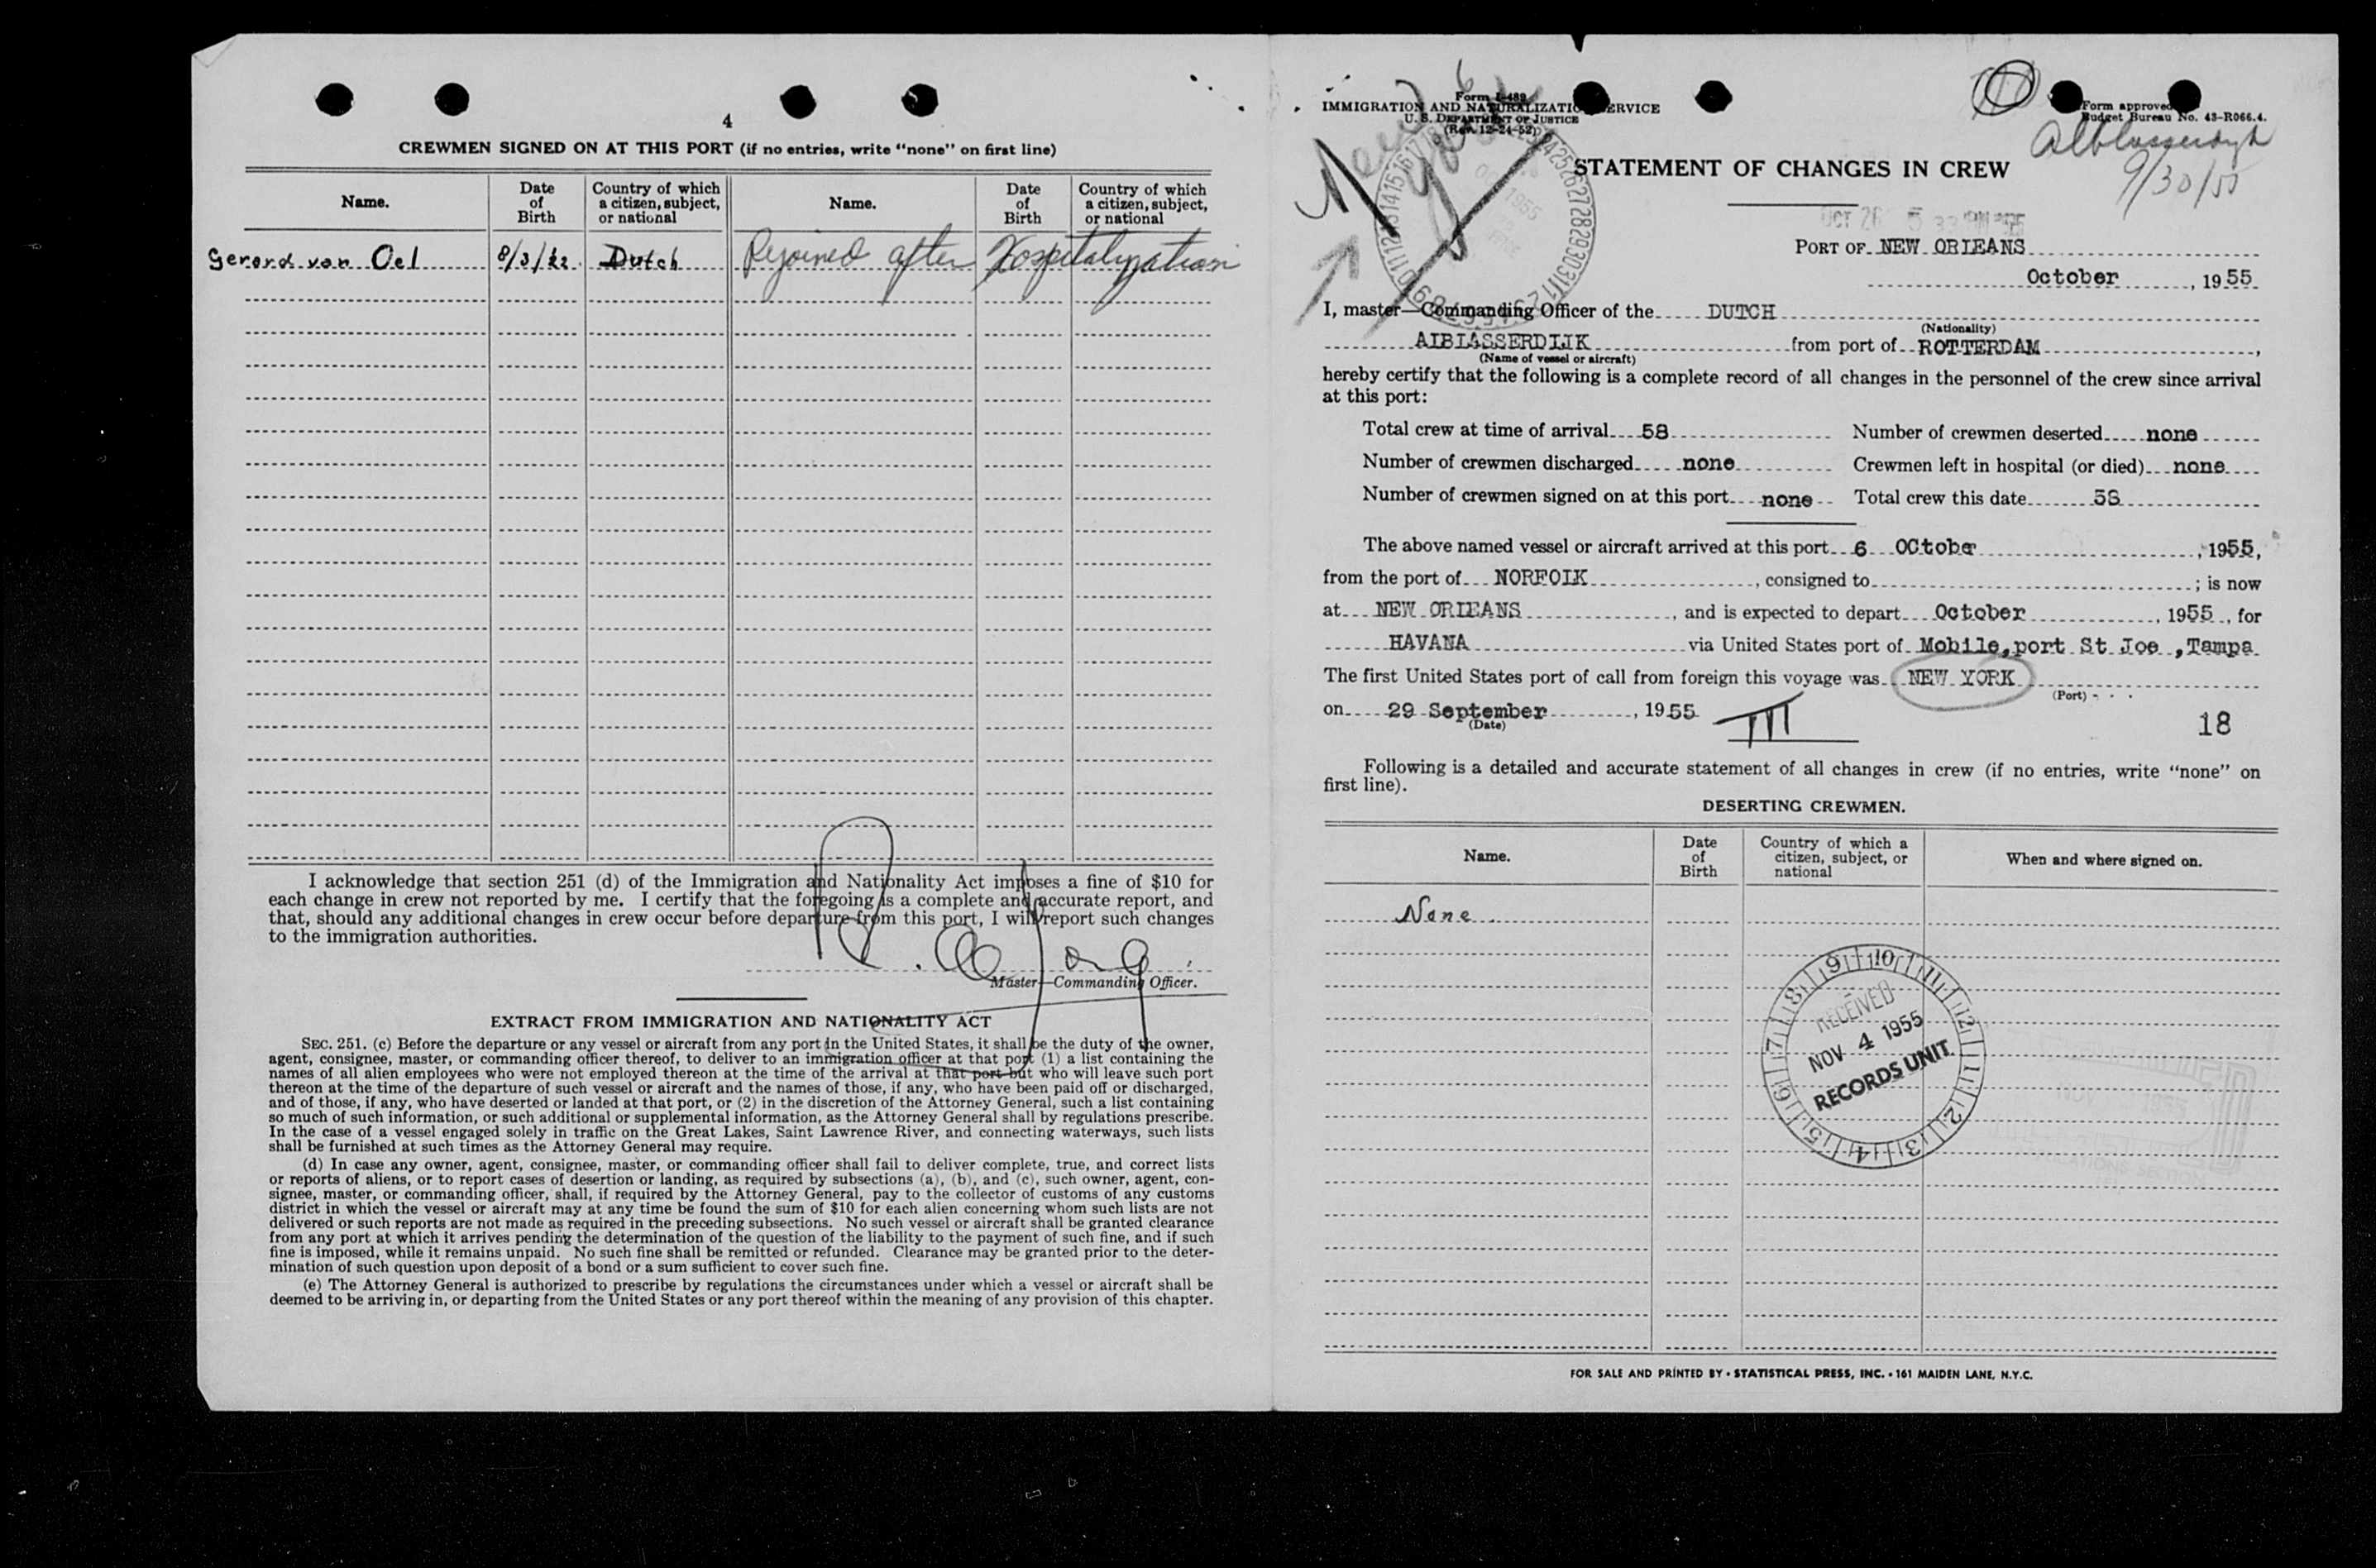 4
CREWMEN SIGNED ON AT THIS PORT (if no entries, write "none" on first line)
Name. Date of Birth Country of which a citizen, subject, or national Name. Date of Birth Country of which a citizen, subject, or national
Gerard van Oel 8/3/22. Dutch Rejoined after Hospitalyzation
I acknowledge that section 251 (d) of the Immigration and Nationality Act imposes a fine of $10 for
each change in crew not reported by me. I certify that the foregoing is a complete and accurate report, and
that, should any additional changes in crew occur before departure from this port, I will report such changes
to the immigration authorities.
Master—Commanding Officer.
EXTRACT FROM IMMIGRATION AND NATIONALITY ACT
SEC. 251. (c) Before the departure or any vessel or aircraft from any port in the United States, it shall be the duty of the owner,
agent, consignee, master, or commanding officer thereof, to deliver to an immigration officer at that port (1) a list containing the
names of all alien employees who were not employed thereon at the time of the arrival at that port but who will leave such port
thereon at the time of the departure of such vessel or aircraft and the names of those, if any, who have been paid off or discharged,
and of those, if any, who have deserted or landed at that port, or (2) in the discretion of the Attorney General, such a list containing
so much of such information, or such additional or supplemental information, as the Attorney General shall by regulations prescribe.
In the case of a vessel engaged solely in traffic on the Great Lakes, Saint Lawrence River, and connecting waterways, such lists
shall be furnished at such times as the Attorney General may require.
(d) In case any owner, agent, consignee, master, or commanding officer shall fail to deliver complete, true, and correct lists
or reports of aliens, or to report cases of desertion or landing, as required by subsections (a), (b), and (c), such owner, agent, con-
signee, master, or commanding officer, shall, if required by the Attorney General, pay to the collector of customs of any customs
district in which the vessel or aircraft may at any time be found the sum of $10 for each alien concerning whom such lists are not
delivered or such reports are not made as required in the preceding subsections. No such vessel or aircraft shall be granted clearance
from any port at which it arrives pending the determination of the question of the liability to the payment of such fine, and if such
fine is imposed, while it remains unpaid. No such fine shall be remitted or refunded. Clearance may be granted prior to the deter-
mination of such question upon deposit of a bond or a sum sufficient to cover such fine.
(e) The Attorney General is authorized to prescribe by regulations the circumstances under which a vessel or aircraft shall be
deemed to be arriving in, or departing from the United States or any port thereof within the meaning of any provision of this chapter.
Form I-489
IMMIGRATION AND NATURALIZATION SERVICE
U. S. DEPARTMENT OF JUSTICE
(Rev. 12-24-52)
Form approved
Budget Bureau No. 43-R066.4.
9/30/55
STATEMENT OF CHANGES IN CREW
PORT OF NEW ORLEANS
October, 1955
I, master—Commanding Officer of the DUTCH
(Nationality)
AIBIASSERDIJK from port of ROTTERDAM,
(Name of vessel or aircraft)
hereby certify that the following is a complete record of all changes in the personnel of the crew since arrival
at this port:
Total crew at time of arrival 58 Number of crewmen deserted none
Number of crewmen discharged none Crewmen left in hospital (or died) none
Number of crewmen signed on at this port none Total crew this date 58
The above named vessel or aircraft arrived at this port 6 OCtober, 1955,
from the port of NORFOIK, consigned to ; is now
at NEW ORIEANS, and is expected to depart October, 1955, for
HAVANA via United States port of Mobile,port St Joe ,Tampa
The first United States port of call from foreign this voyage was NEW YORK
(Port)
on 29 September, 1955
(Date)
18
Following is a detailed and accurate statement of all changes in crew (if no entries, write "none" on
first line).
DESERTING CREWMEN.
Name. Date of Birth Country of which a citizen, subject, or national When and where signed on.
None.
RECEIVED
NOV 4 1955
RECORDS UNIT
FOR SALE AND PRINTED BY • STATISTICAL PRESS, INC. • 161 MAIDEN LANE, N.Y.C.